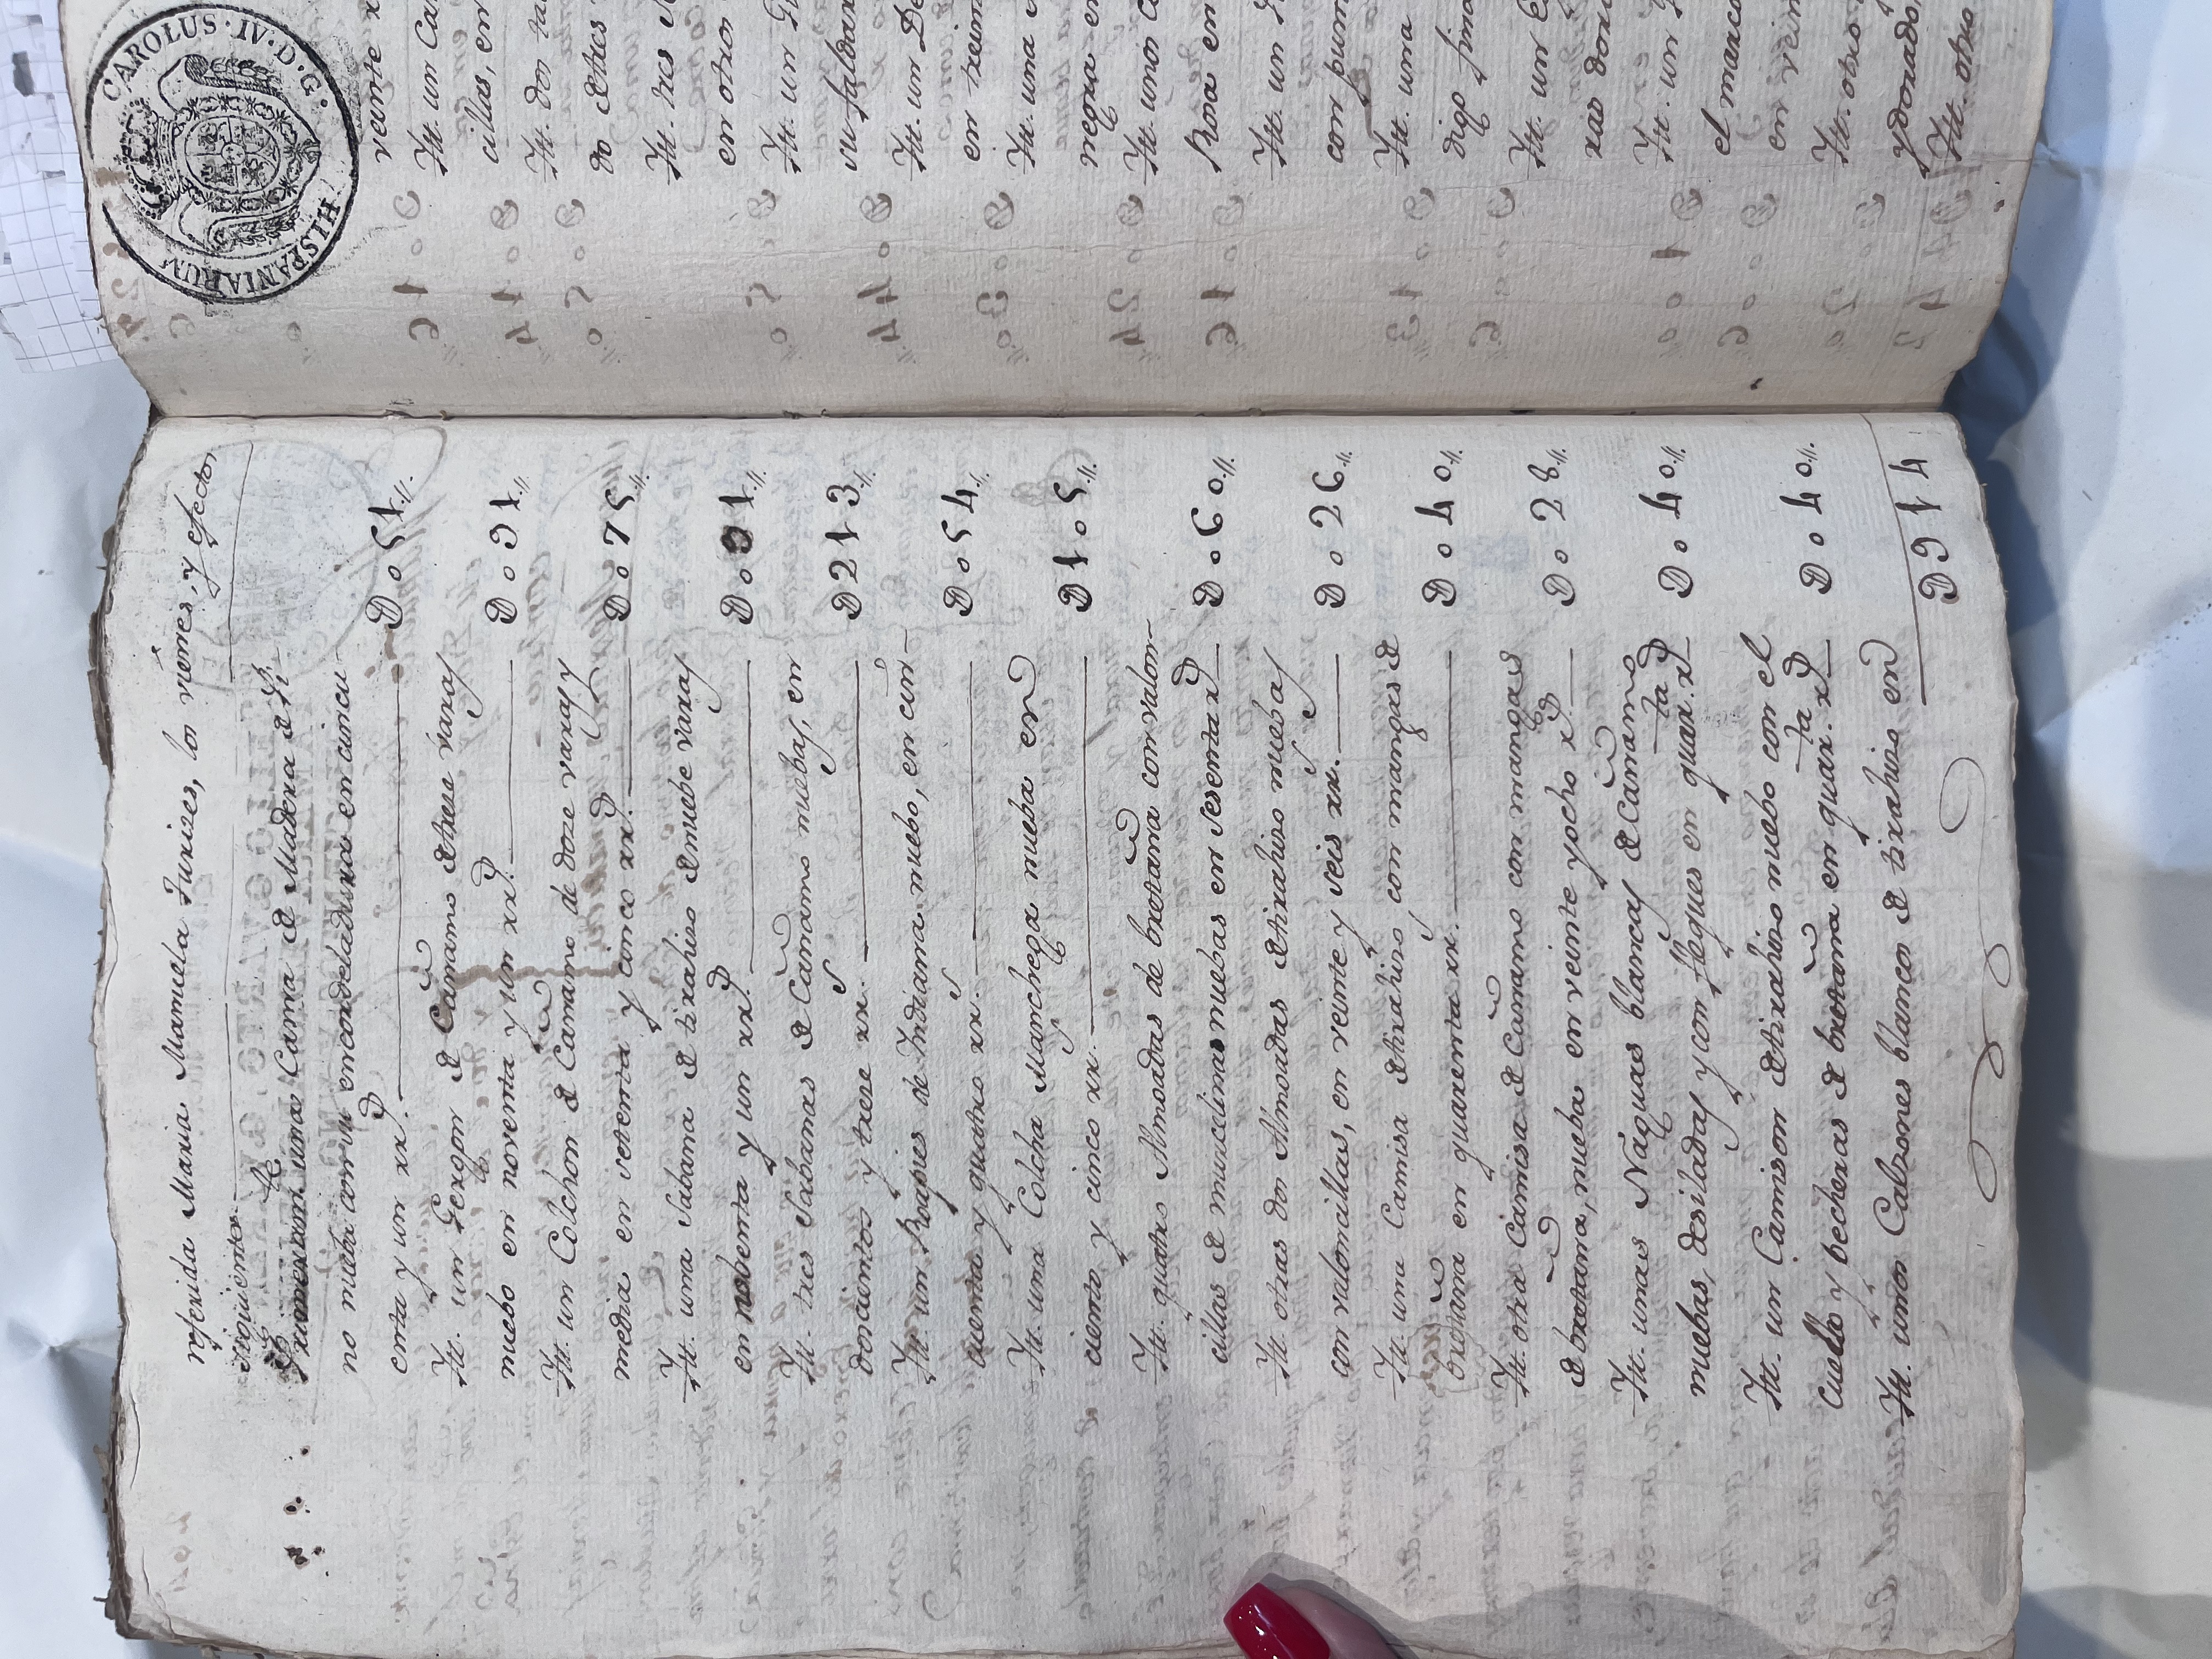 referida Maria Manuela Juxises, los vienes, y efectos
siguientes
Primeram.te una Cama de Madera de Pi
no nueba con su encordeladura en cincu
enta y un rr.s D o 51
Itt. un Gergon de Cañamo de trese varas
nuebo en noventa y un rr.s D o 91
Itt. un Colchon de Cañamo, de doze varas y
media en setenta y cinco rr.s D o 75
Itt. una Sabana de tixahiso de nuebe varas
en nobenta y un rr.s D o 91
Itt. tres Sabanas de Cañamo nuebas, en
doscientos y trese rr.s D 213
Itt. un Roapies de Indiana nuebo, en cin-
cuenta y quatro rr.s D o 54
Itt. una Colcha Manchega nueba en
ciento y cinco rr.s D 1 o 5
Itt. quatro Almoadas de bretaña con valon
cillas de muselinas nuebas en sesenta r.s D o 60
Itt. otras dos Almoadas de tixahiso nuebas
con valoncillas, en veinte y seis rr. D o 26
Itt. una Camisa de tixahiso con mangas de
bretaña en quarenta rr. D o 40
Itt. otra Camisa de Cañamo con mangas
de bretaña, nueba en veinte y ocho r.s D o 28
Itt. unas Naguas blancas de Cañamo
nuebas, desiladas y con flegues en quar.ta r.s D o 40
Itt. un Camison de tixahiso nuebo con el
cuello y becheras de bretaña en quar.ta r.s D o 40
Itt. unos Calzones blancos de tixahiso en
D 914
CAROLUS · IV · D · G · HISPANIARUM
veinte
Itt. un
cillas, en
Itt. dos
do de tres
Itt. tres
en otros
Itt. un
su faldar
Itt. un
en trein
Itt. una
negra en
Itt. unos
Rona en
Itt. un
con pun
Itt. una
digo fino
Itt. un
xas don
Itt. un
el marco
en vein
Itt. otro
y dorado,
Itt. otro